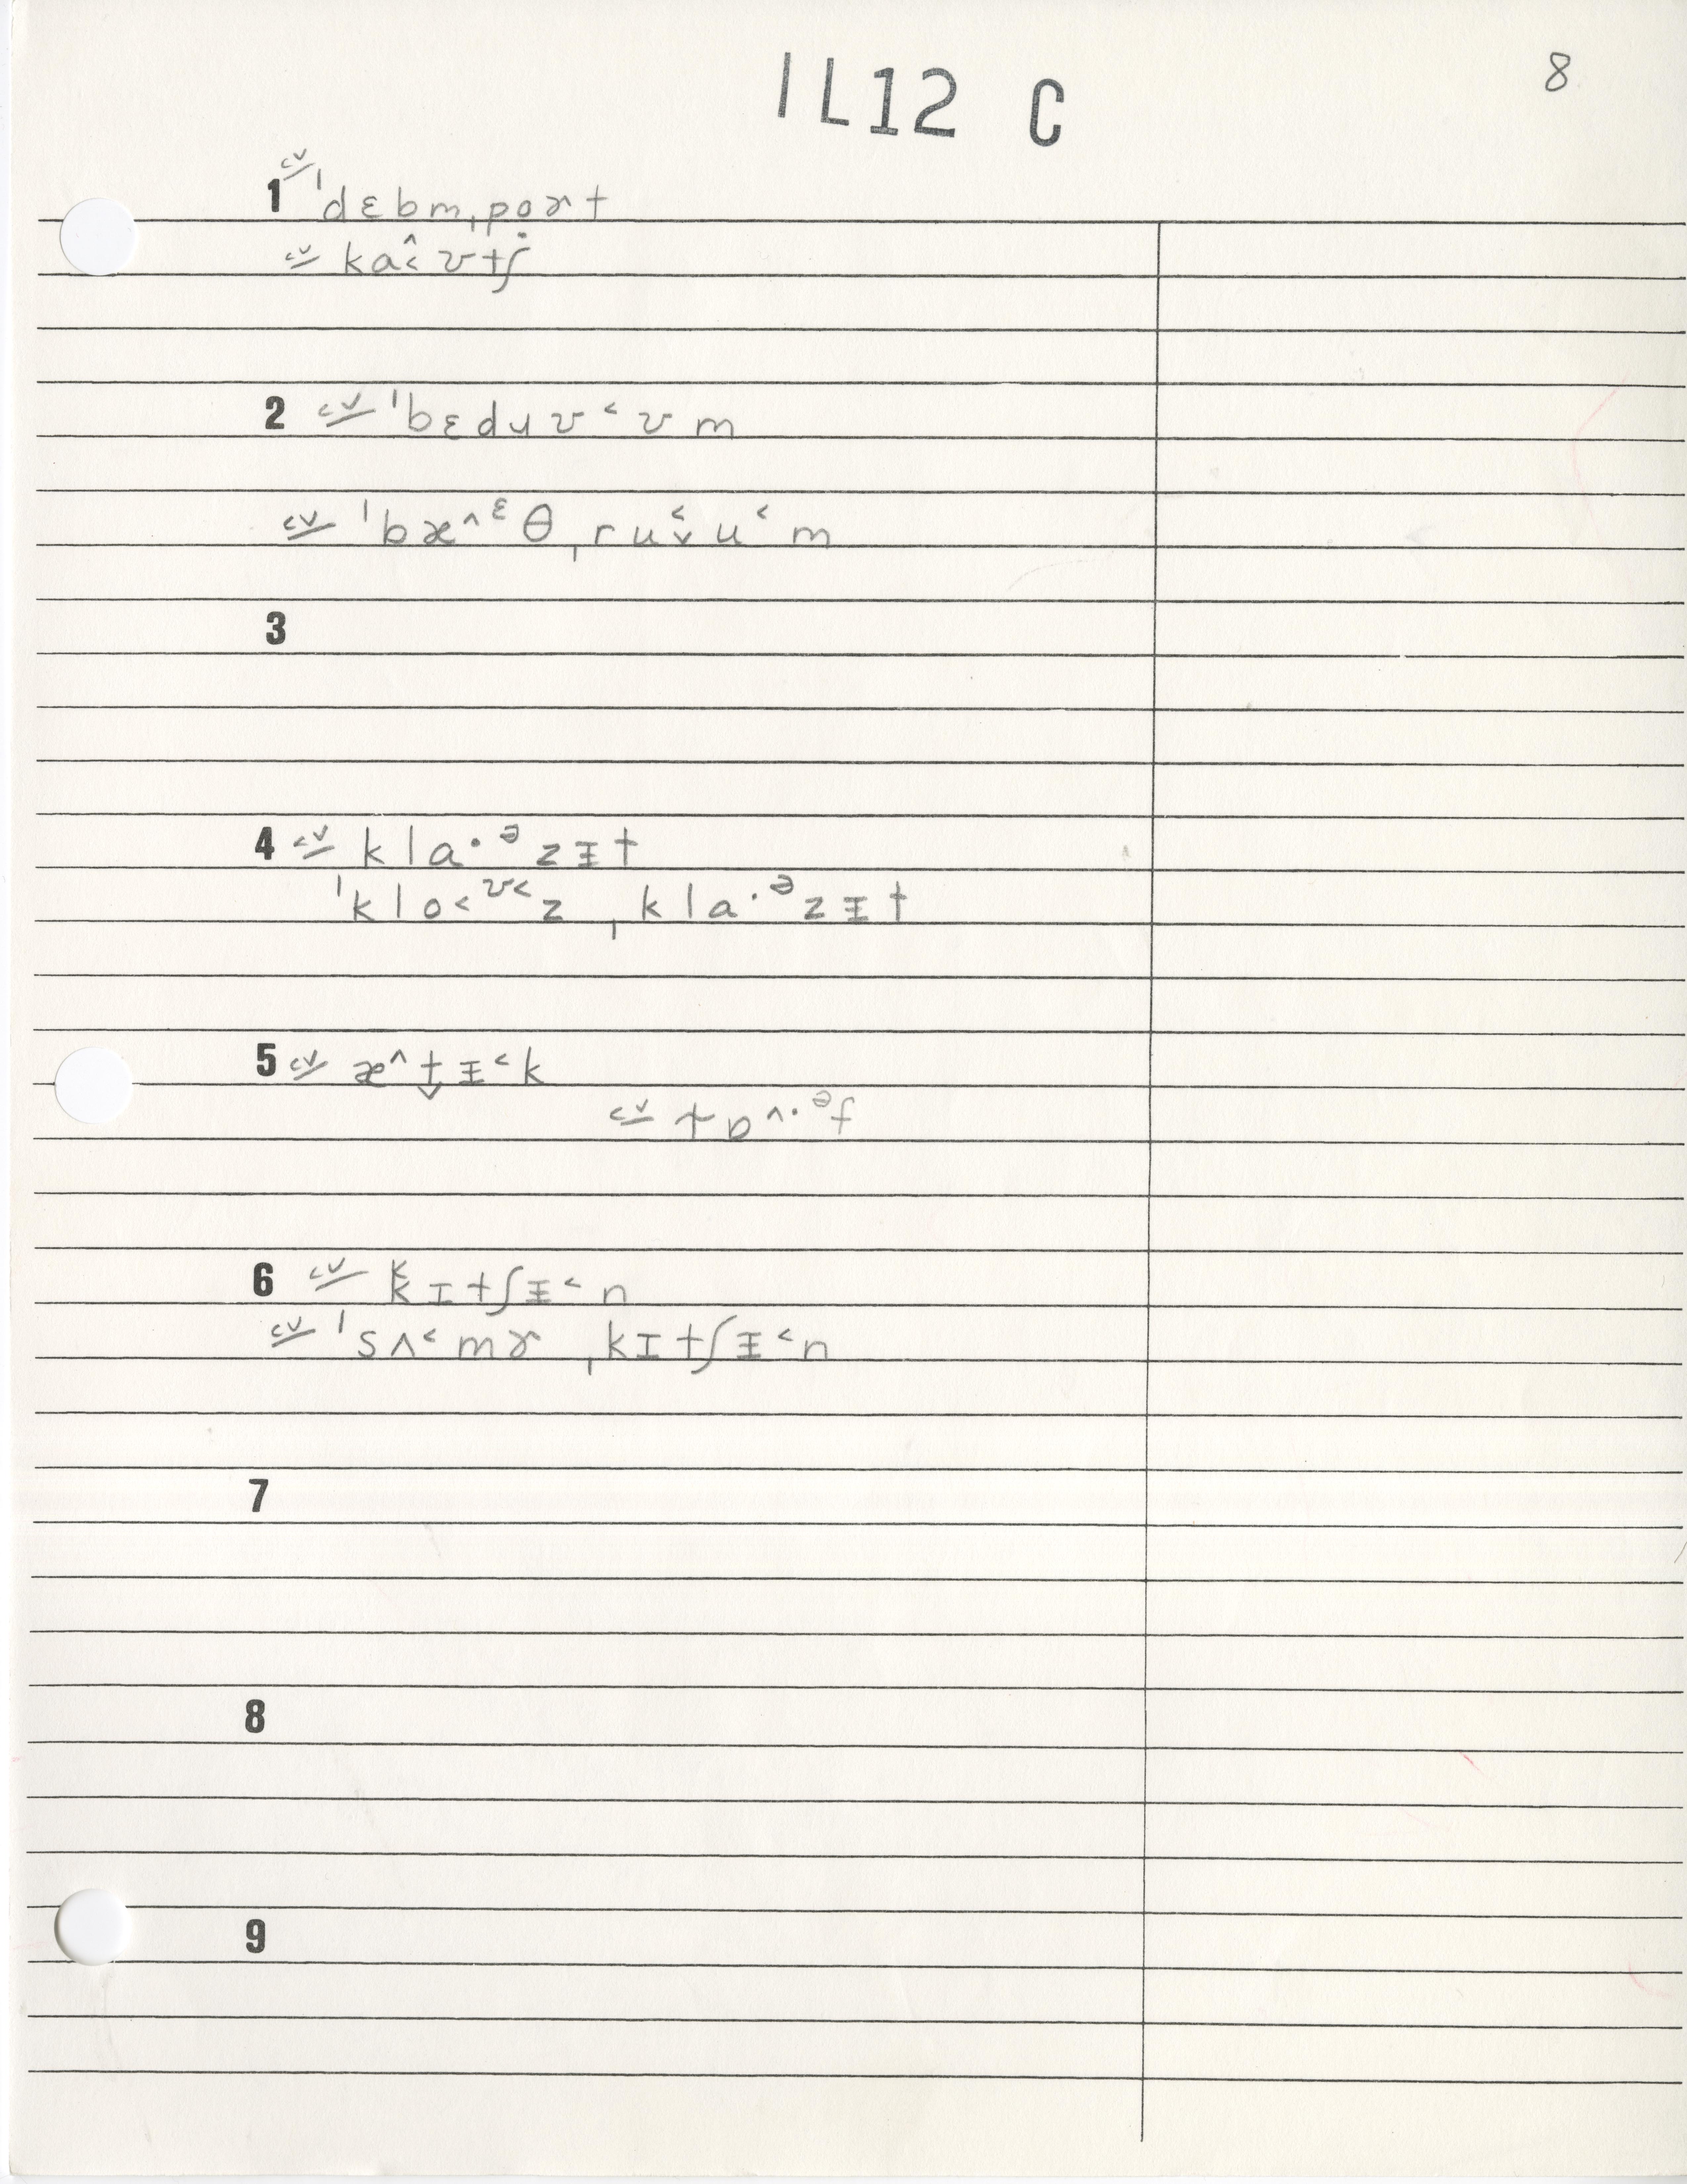 IL12 C
8
1 cv ˈdɛbmˌpoɚt
cv kaʊtʃ
2 cv ˈbɛdʊʊ˂ʊm
cv ˈbæ^ᵋθˌru˂˅u˂m
3
4 cv kla·ᵊzɪt
ˈklo˂ᶷ˂zˌkla·ᵊzɪt
5 cv æ^t̬ɪ˂k
6 cv kɪtʃɪ˂n
cv ˈsʌ˂mɚˌkɪtʃɪ˂n
7
8
9